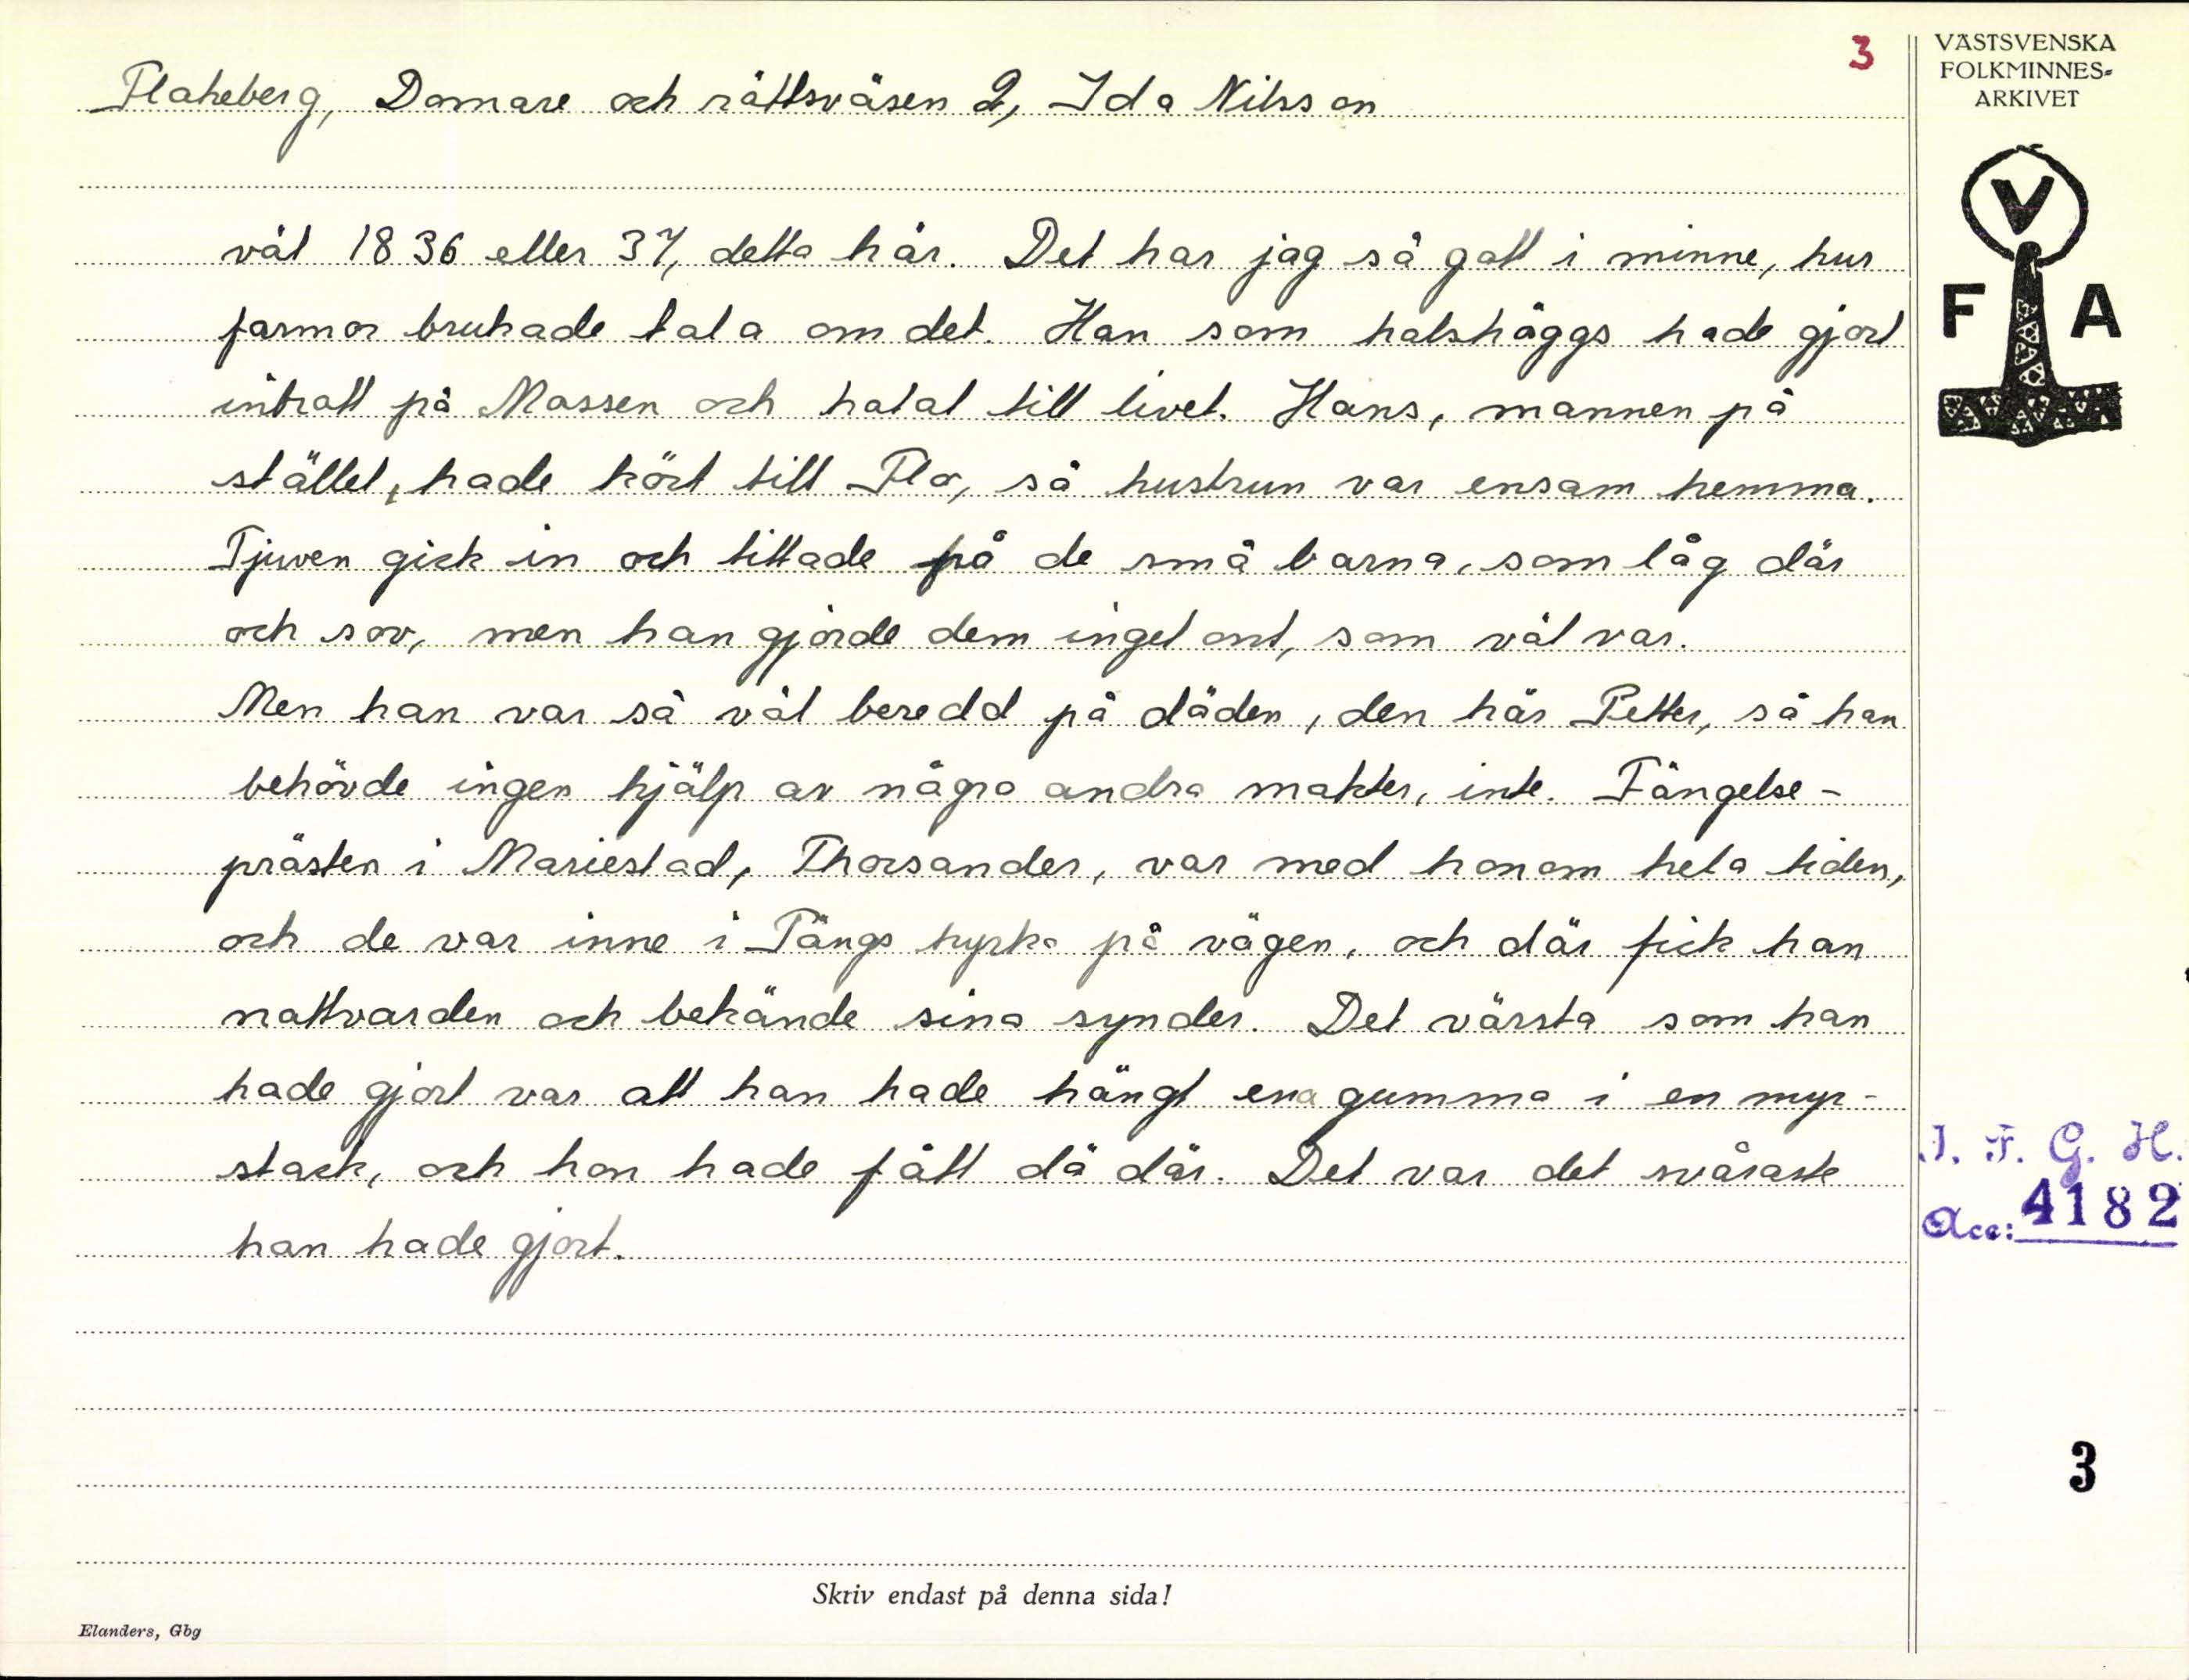 3
VÄSTSVENSKA
FOLKMINNES-
ARKIVET
Flakeberg, Domare och rättsväsen 2, Ida Nilsson
V
F A
väl 1836 eller 37, detta här. Det har jag så gott i minne, hur
farmor brukade tala om det. Han som halshöggs hade gjort
inbrott på Mossen och hotat till livet. Hans, mannen på
stället, hade kört till Flo, så hustrun var ensam hemma.
Tjuven gick in och tittade på de små barna, som låg där
och sov, men han gjorde dem inget ont, som väl var.
Men han var så väl beredd på döden, den här Petter, så han
behövde ingen hjälp av några andra makter, inte. Fängelse-
prästen i Mariestad, Thorsander, var med honom hela tiden,
och de var inne i Tängs kyrka på vägen, och där fick han
nattvarden och bekände sina synder. Det värsta som han
hade gjort var att han hade hängt ena gumma i en myr-
stack, och hon hade fått dö där. Det var det svåraste
han hade gjort.
I. F. G. H.
Acc: 4182
3
Skriv endast på denna sida!
Elanders, Gbg